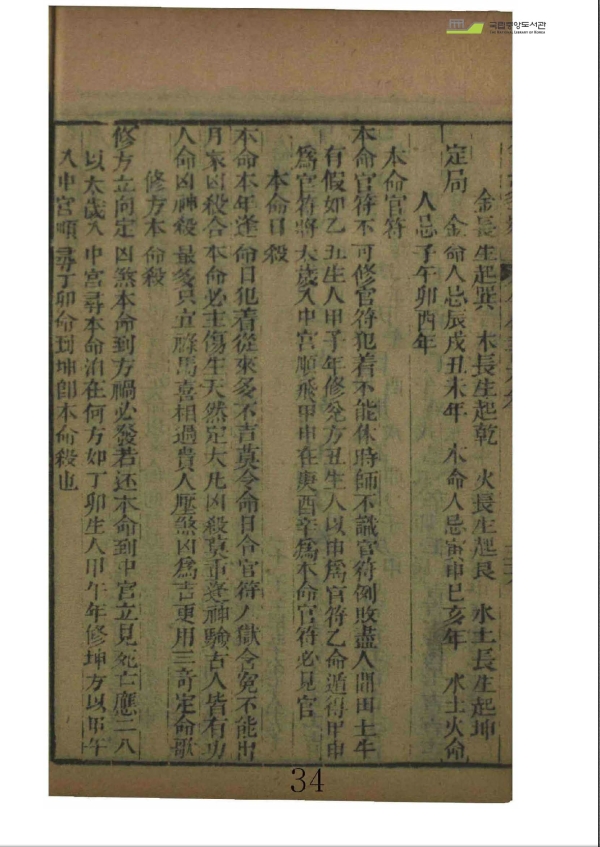 국립중앙도서관
THE NATIONAL LIBRARY OF KOREA
金長生起巽　木長生起乾　火長生起艮　水土長生起坤
定局　金命人忌辰戌丑未年　木命人忌寅申巳亥年　水土火命
人忌子午卯酉年
本命官符
本命官符不可修官符犯着不能休時師不識官符例敗盡人間田土牛
有假如乙丑生人甲子年修兌方丑生人以申爲官符乙命遁得甲申
爲官符將太歲入中宮順飛甲申在庚酉辛爲本命官符必見官
本命日殺
本命本年逢命日犯着從來多不吉莫令命日合官符入獄含寃不能出
月家凶殺合本命必主傷生天然定大凡凶殺莫重受神驗古人皆有功
人命凶神殺最多只宜祿馬喜相過貴人壓煞凶爲吉更用三奇定命歌
修方本命殺
修方立向定凶煞本命到方禍必發若还本命到中宮立見死亡應二八
以太歲入中宮尋本命泊在何方如丁卯生人甲午年修坤方以甲午
入中宮順尋丁卯命到坤卽本命殺也
34